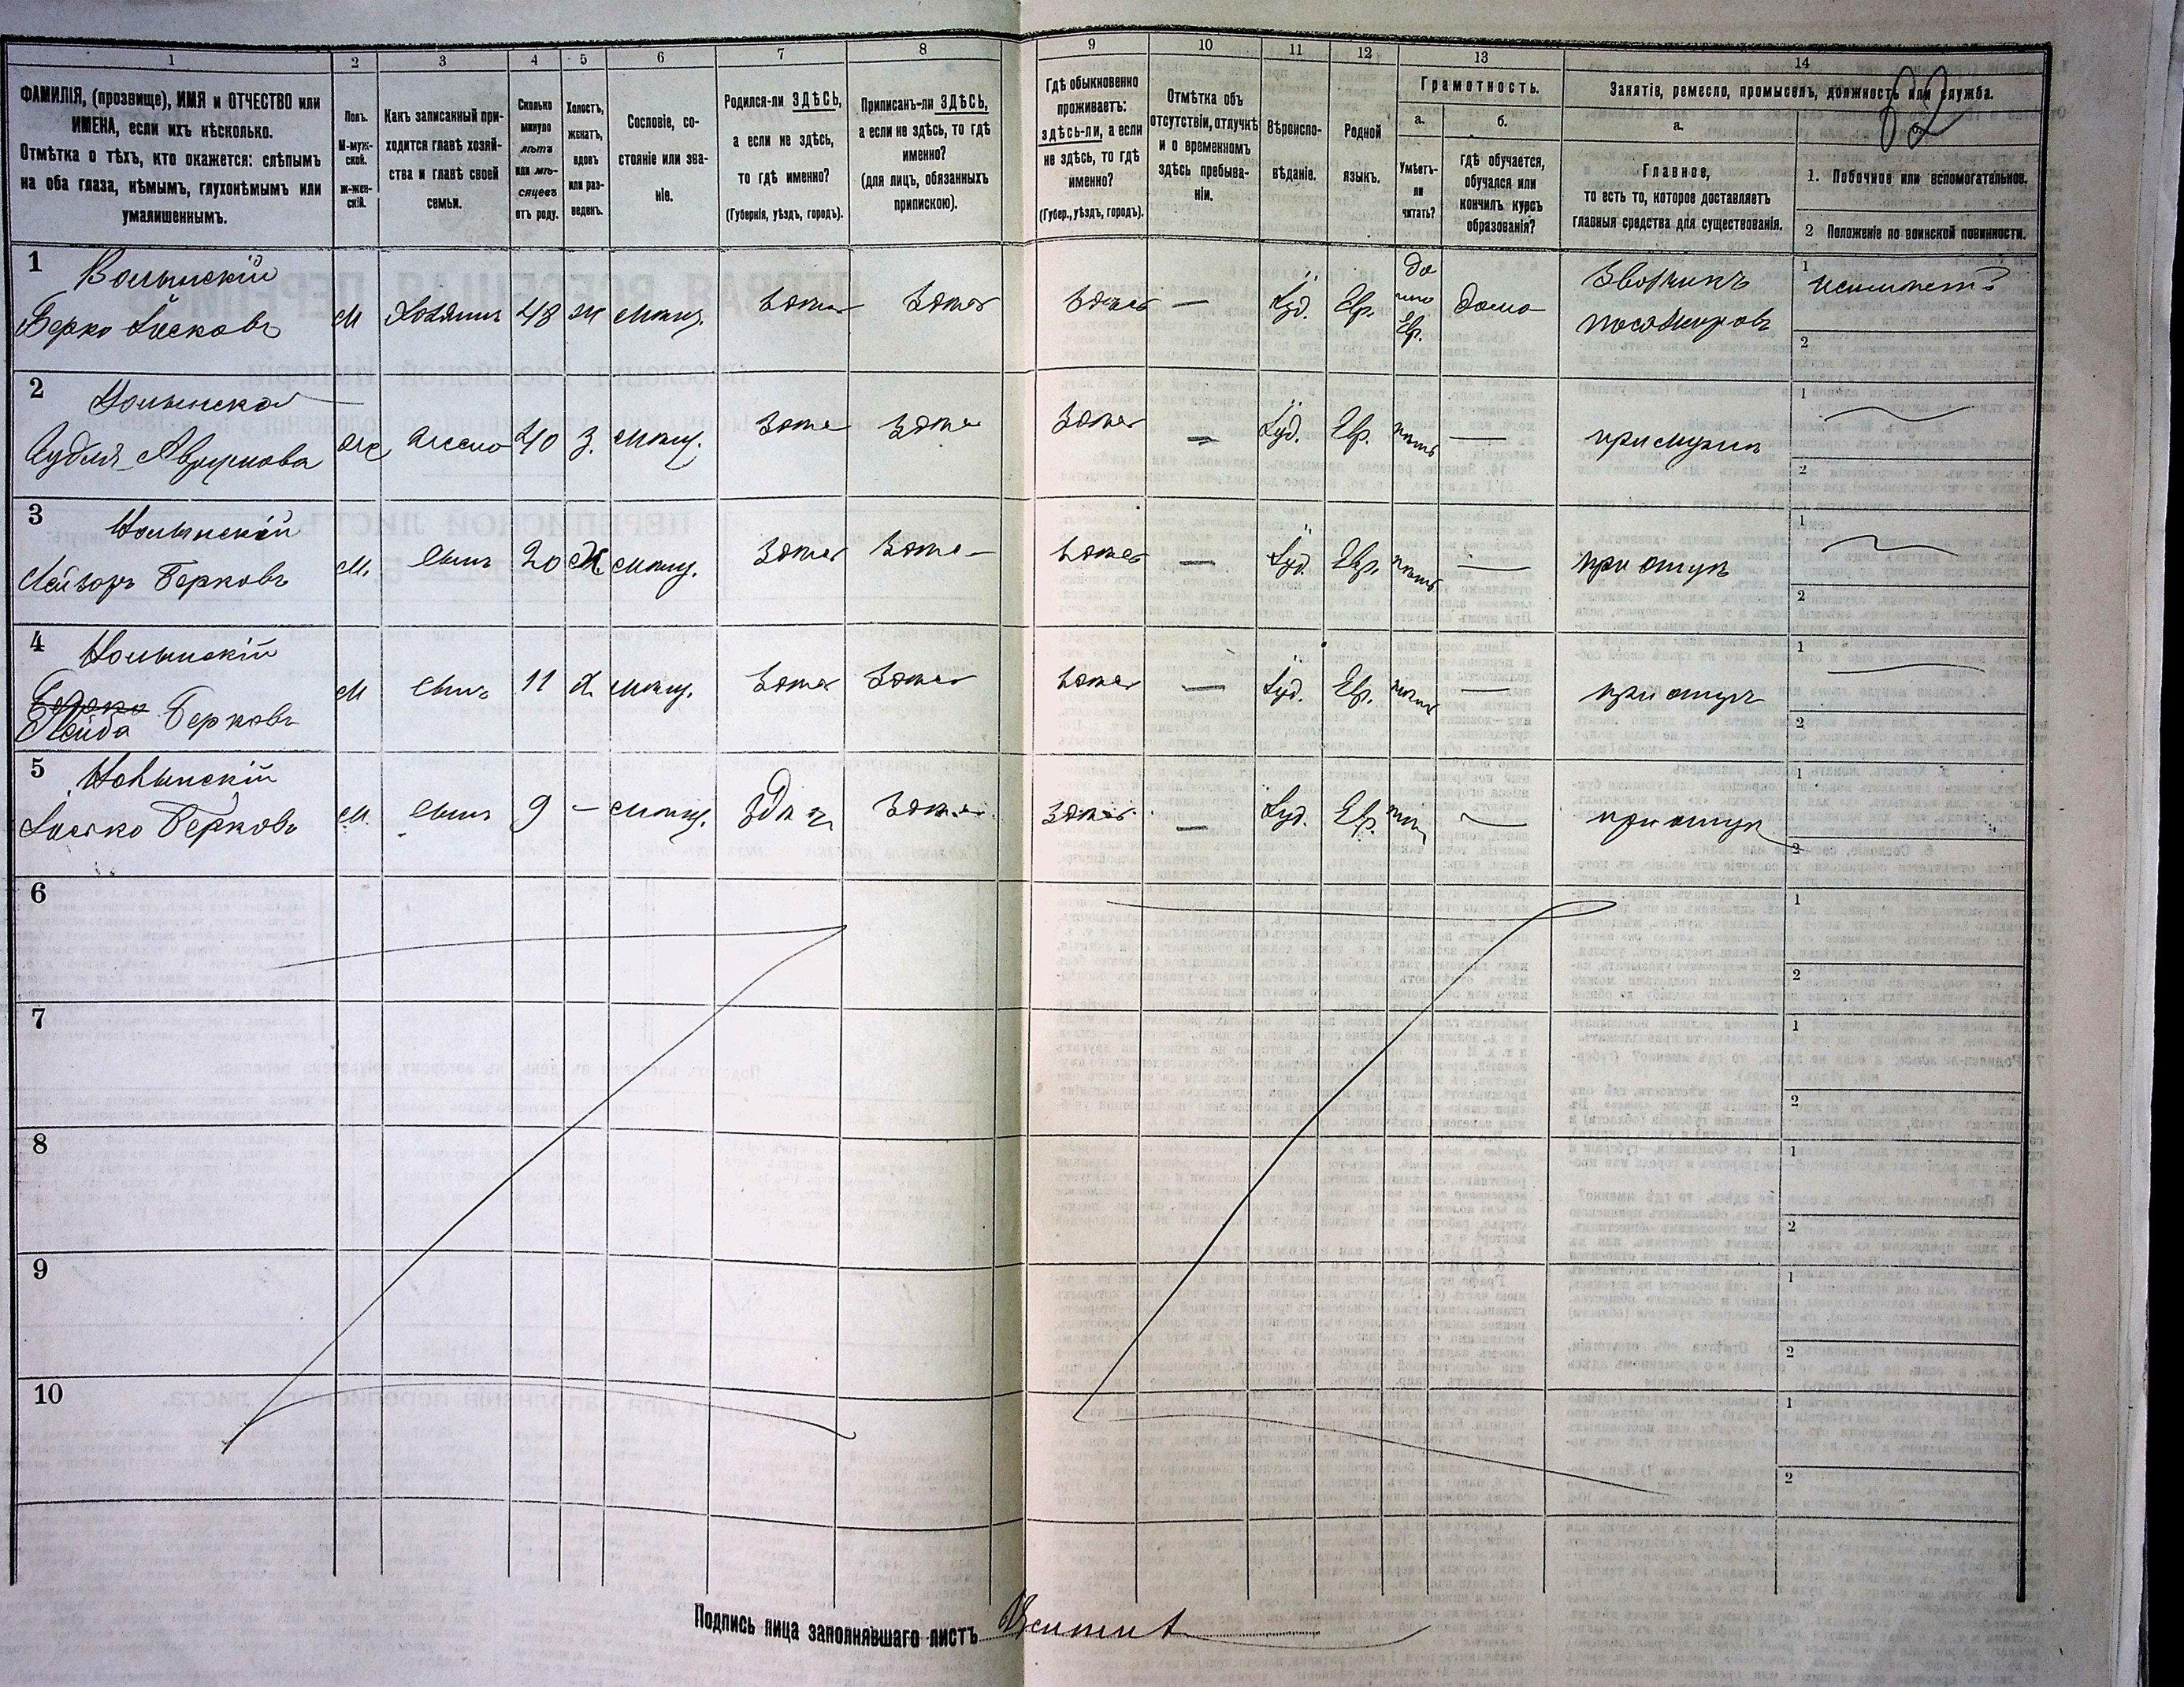 1 2 3 4 5 6 7 8 9 10 11 12 13 14
ФАМИЛІЯ, (прозвище), ИМЯ и ОТЧЕСТВО или
ИМЕНА, если ихъ нѣсколько.
Отмѣтка о тѣхъ, кто окажется: слѣпымъ
на оба глаза, нѣмымъ, глухонѣмымъ или
умалишеннымъ.
Полъ.
М-муж-
ской.
Ж-жен-
скій.
Какъ записанный при-
ходится главѣ хозяй-
ства и главѣ своей
семьи.
Сколько
минуло
лѣтъ
или мѣ-
сяцевъ
отъ роду.
Холостъ,
женатъ,
вдовъ
или раз-
веденъ.
Сословіе, со-
стояніе или зва-
ніе.
Родился-ли ЗДѢСЬ,
а если не здѣсь,
то гдѣ именно?
(Губернія, уѣздъ, городъ).
Приписанъ-ли ЗДѢСЬ,
а если не здѣсь, то гдѣ
именно?
(для лицъ, обязанныхъ
припискою).
Гдѣ обыкновенно
проживаетъ:
здѣсь-ли, а если
не здѣсь, то гдѣ
именно?
(Губер., уѣздъ, городъ).
Отмѣтка объ
отсутствіи, отлучкѣ
и о временномъ
здѣсь пребыва-
ніи.
Вѣроиспо-
вѣданіе.
Родной
языкъ.
Грамотность.
а.
Умѣетъ-
ли
читать?
б.
гдѣ обучается,
обучался или
кончилъ курсъ
образованія?
Занятіе, ремесло, промыселъ, должность или служба.
62
а.
Главное,
то есть то, которое доставляетъ
главныя средства для существованія.
1. Побочное или вспомогательное.
2 Положеніе по воинской повинности.
1 Волынскій
Берко Іосковъ М Хозяинъ 48 ж мѣщ. Здѣсь Здѣсь Здѣсь — Іуд. Евр. да по Евр. дома
Звощикъ
1
2
2 Волынская
Аврумова Ж жена 40 З. мѣщ. Здѣсь Здѣсь Здѣсь — Іуд. Евр. нѣтъ — при мужѣ
1
2
3 Волынскій
Лейзоръ Берковъ М. сынъ 20 Х мѣщ. Здѣсь Здѣсь Здѣсь — Іуд. Евр. нѣтъ — при отцѣ
1
2
4 Волынскій
Берковъ М сынъ 11 Х. мѣщ. Здѣсь Здѣсь Здѣсь — Іуд. Евр. нѣтъ — при отцѣ
1
2
5 Волынскій
Іосько Берковъ М. сынъ 9 — мѣщ. Здѣсь Здѣсь Здѣсь — Іуд. Евр. нѣтъ — при отцѣ
1
2
6 1
2
7 1
2
8 1
2
9 1
2
10 1
2
Подпись лица заполнявшаго листъ